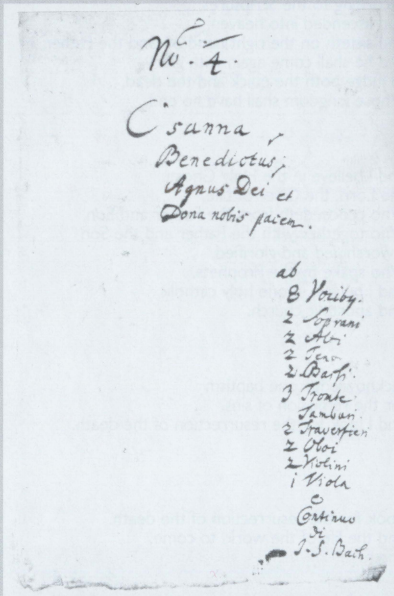 No. 4.
Osanna,
Benedictus,
Agnus Dei et
Dona nobis pacem.
ab
8 Vocibg.
2 Soprani
2 Alti
2 Teno
2 Bassi.
3 Trombe
Tamburi.
2 Traversieri
2 Oboi
2 Violini
1 Viola
e
Continuo
di
J. S. Bach.